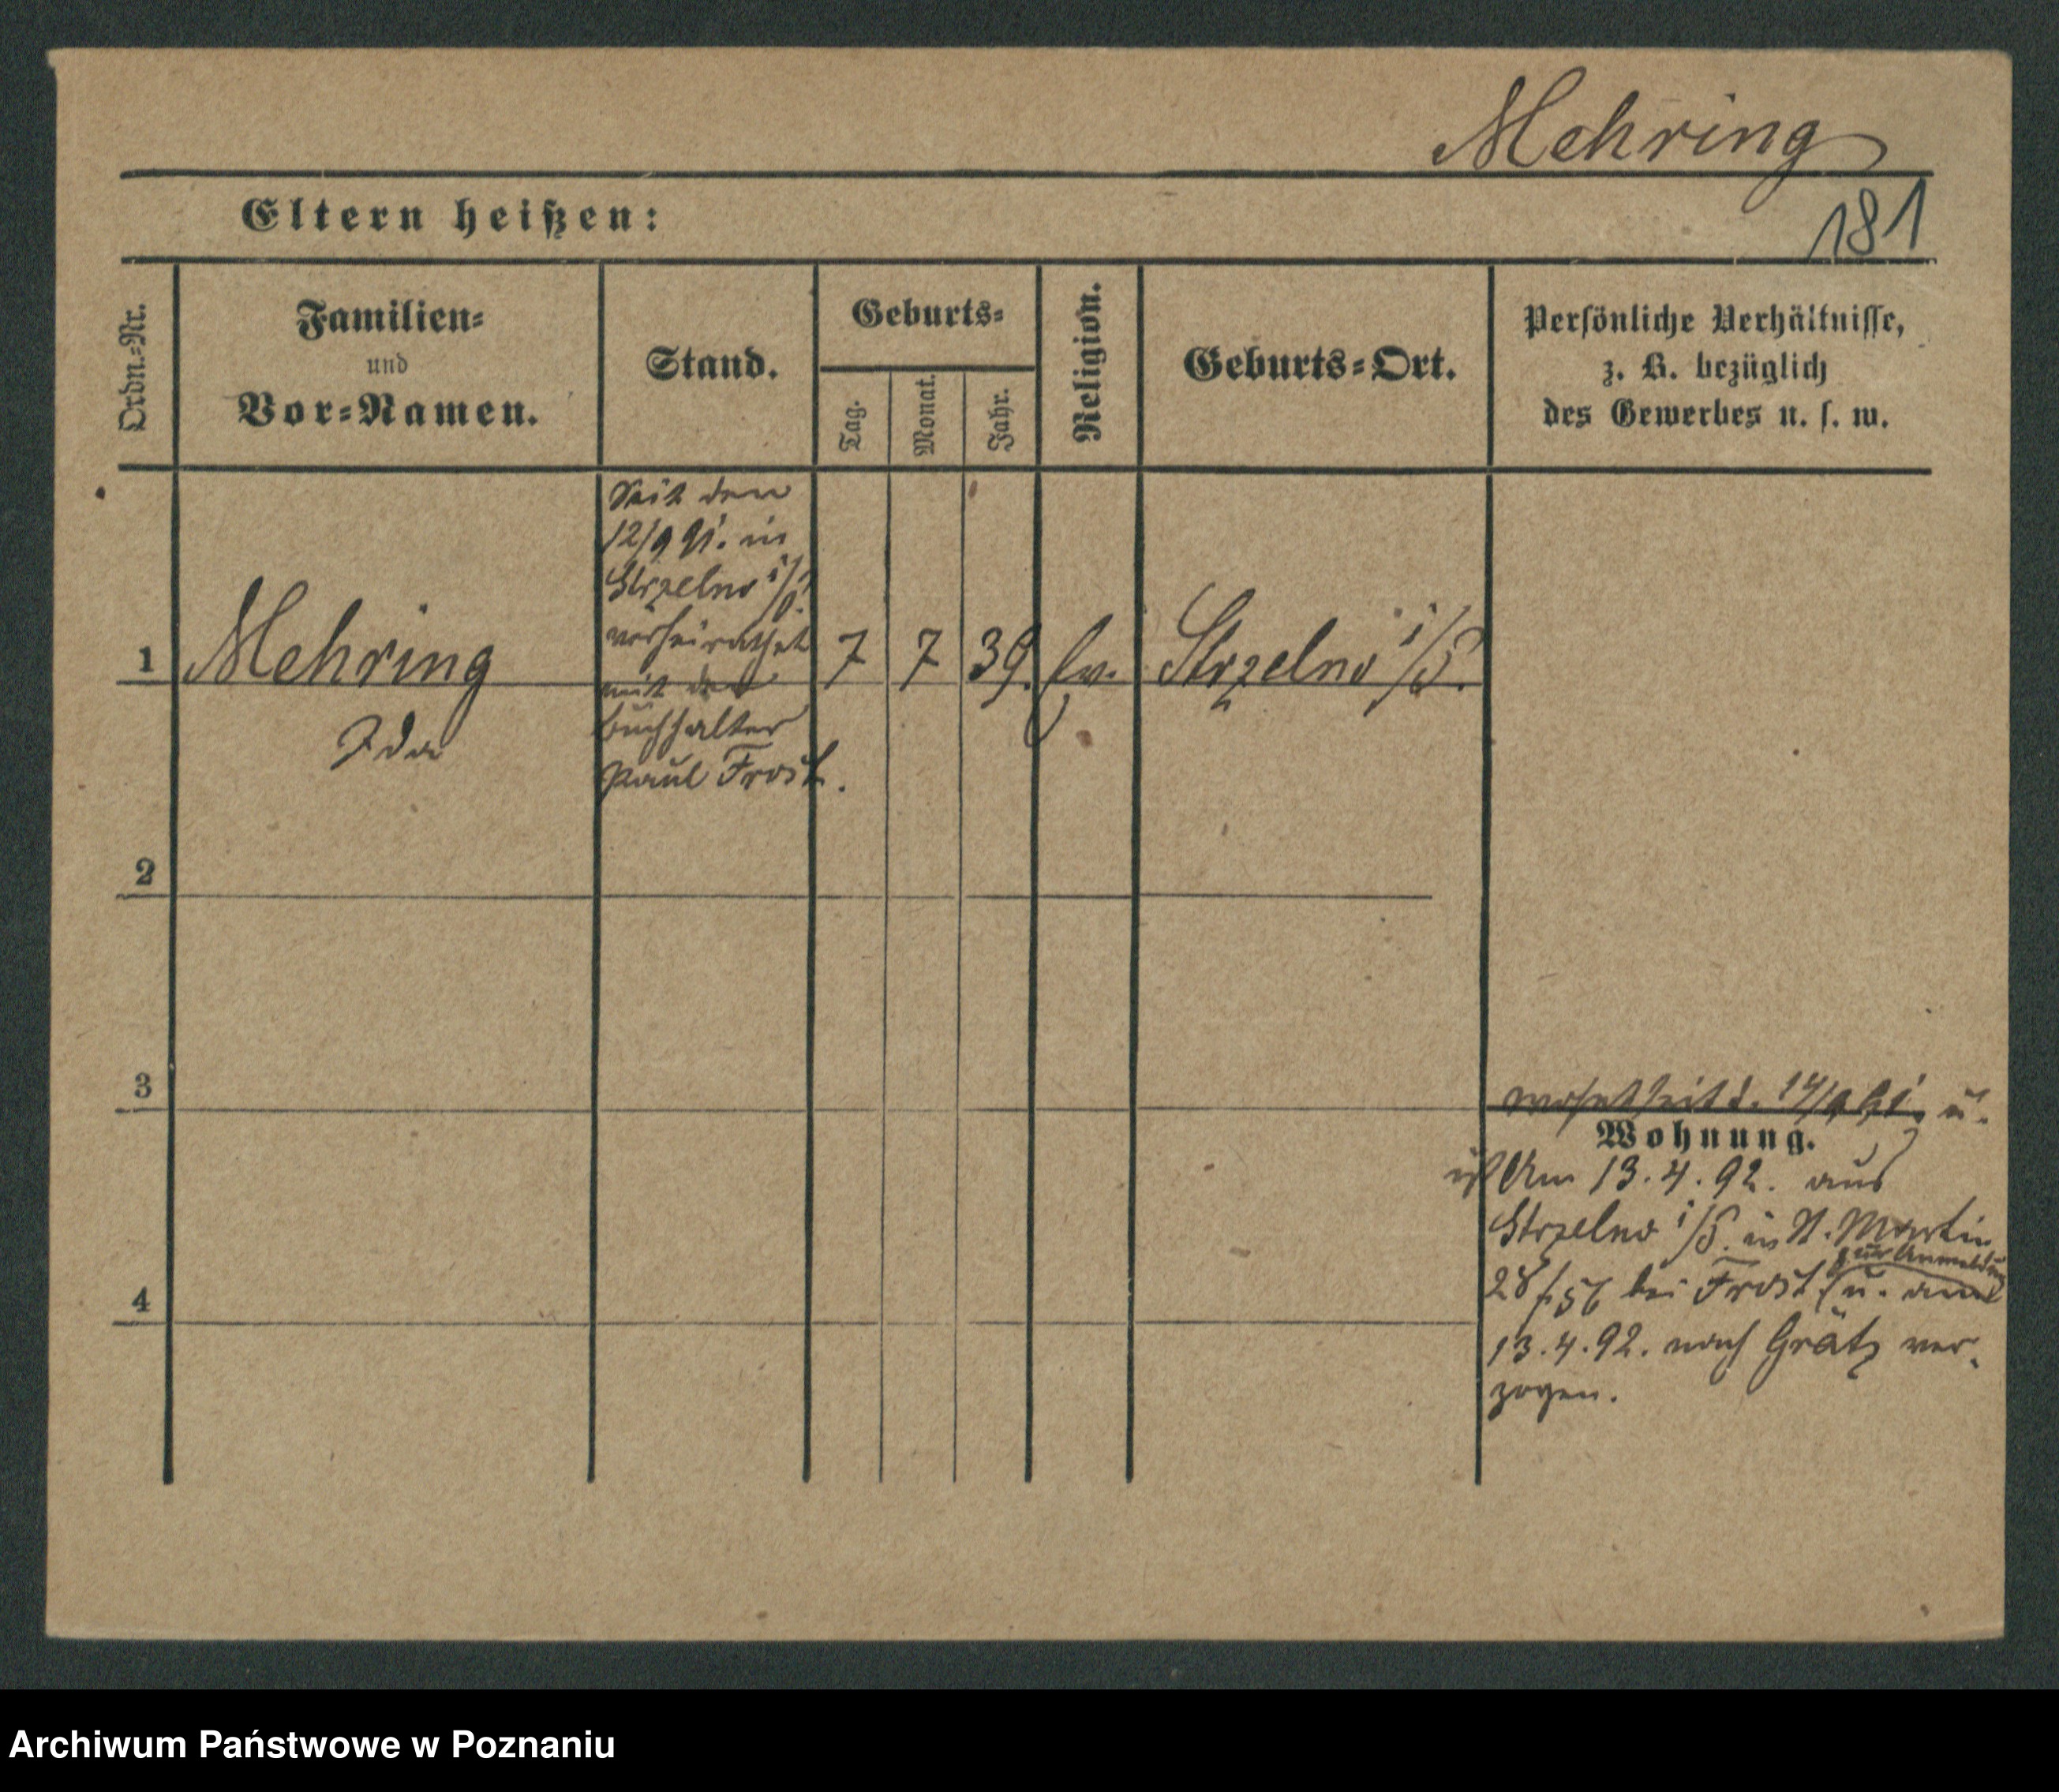 Mehring
Eltern heißen:
181
Ordn.-Nr.
Familien-
und
Vor-Namen.
Stand.
Geburts-
Tag.
Monat.
Jahr.
Religion.
Geburts-Ort.
Persönliche Verhältnisse,
z. B. bezüglich
des Gewerbes u. s. w.
Seit den
12/9 91. in
Strzelno i/P.
verheirathet
mit den
Buchhalter
Paul Frost.
1
Mehring
Ida
7
7
39.
Ev.
Strzelno i/P.
2
3
4
wohnt seit d. 14/9 91. u.
Wohnung.
ist Am 13.4.92. aus
Strzelno i/P. in St. Martin
zur Anmeldung
28/ 56 bei Frost u.
13.4.92. nach Grätz ver-
zogen.
Archiwum Państwowe w Poznaniu